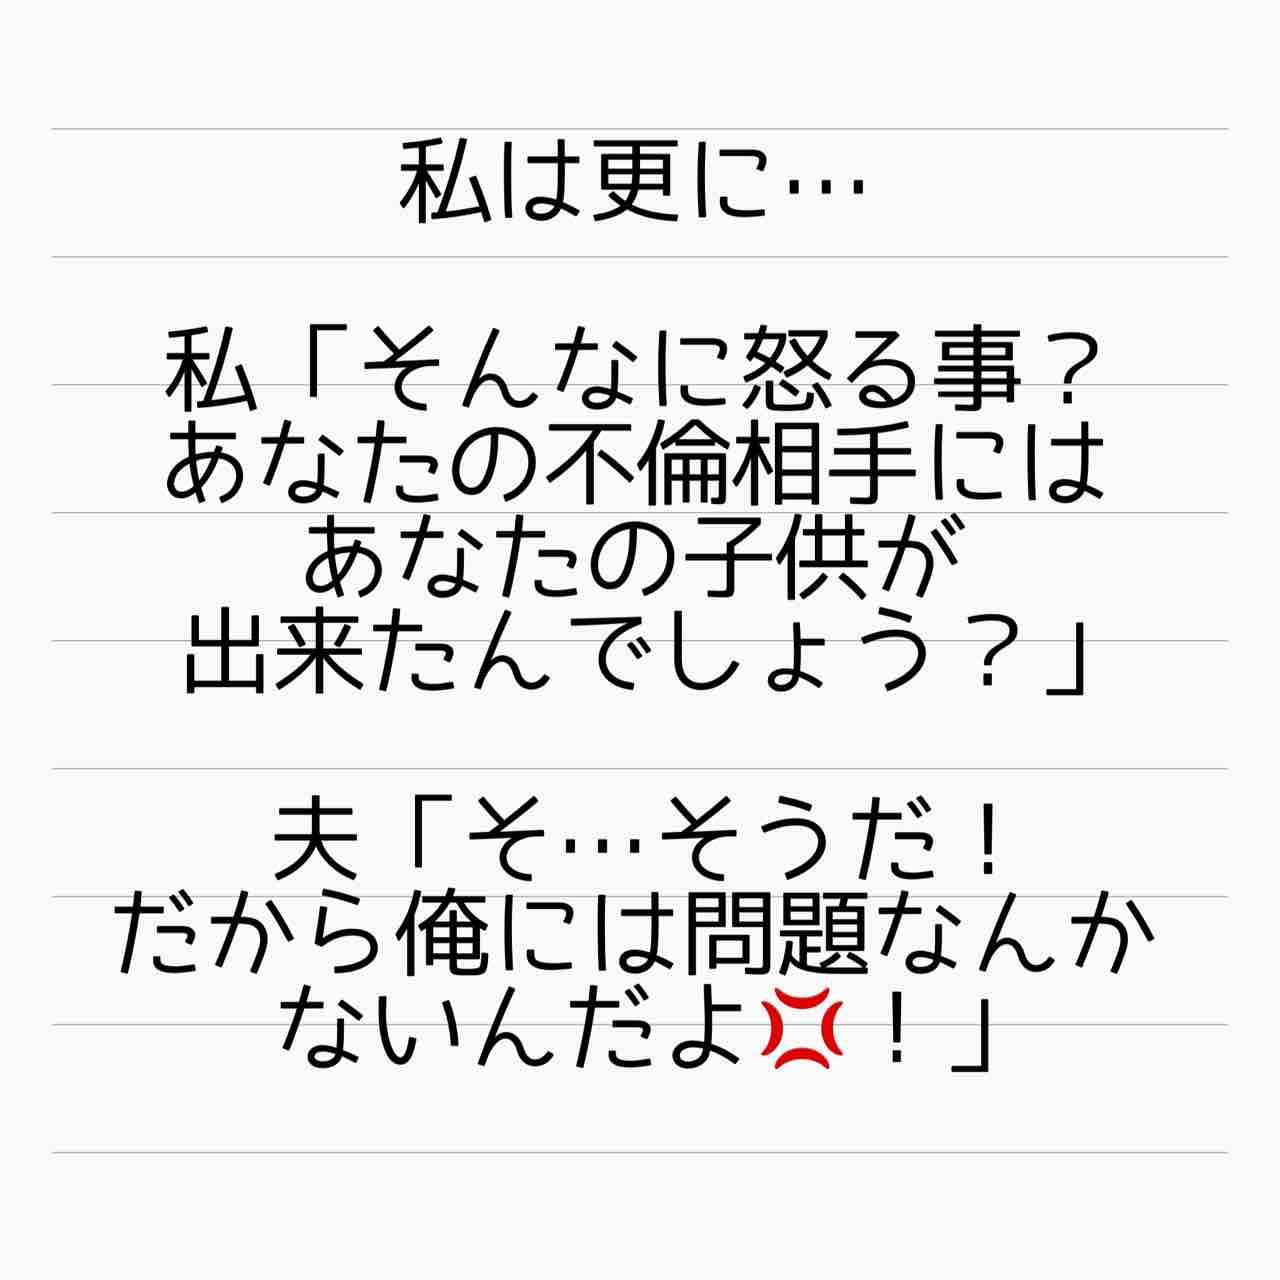 私は更に…
私「そんなに怒る事？
あなたの不倫相手には
あなたの子供が
出来たんでしょう？」
夫「そ…そうだ！
だから俺には問題なんか
ないんだよ💢！」